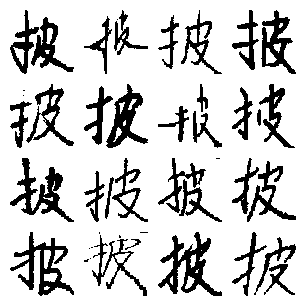 披披披披
披披披披
披披披披
披披披披